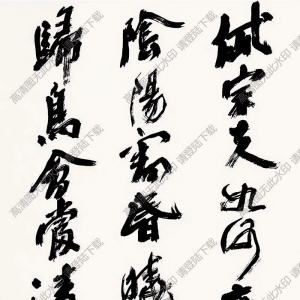 岱宗夫如何
陰陽割昏曉
歸鳥會當凌
高清图无此水印 请登陆下载